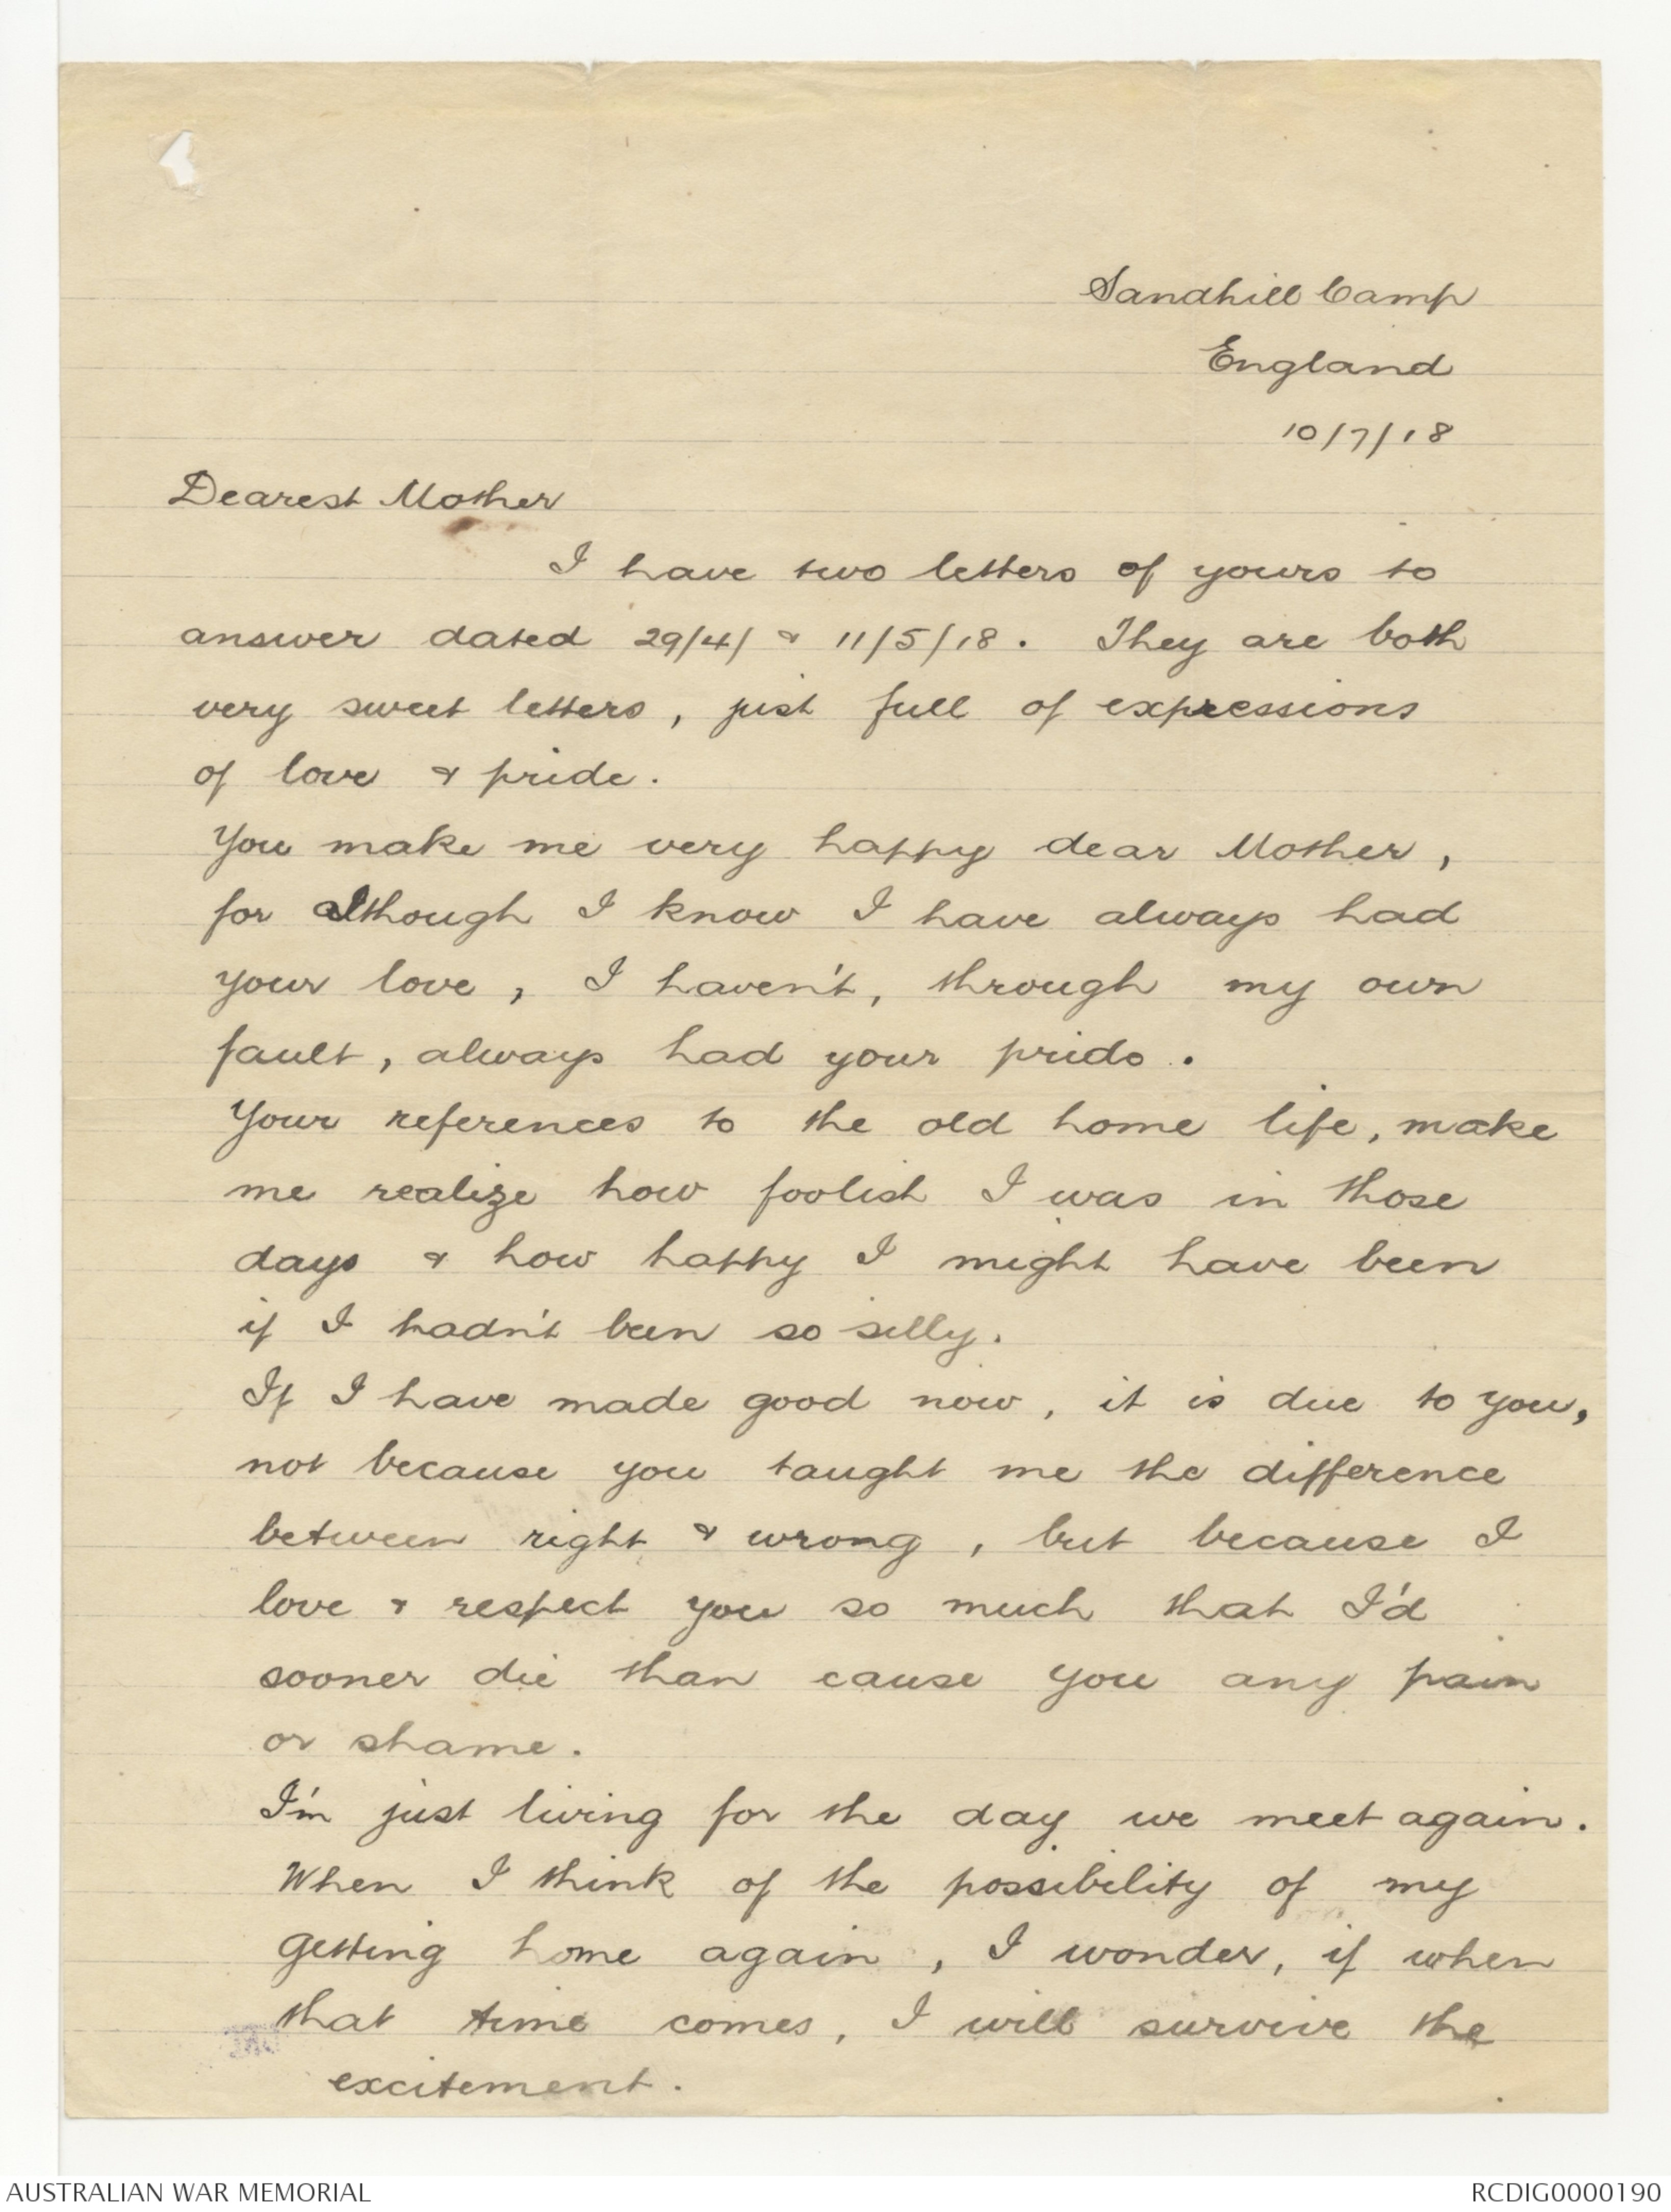 Sandhill Camp
England
10/7/18
Dearest Mother
I have two letters of yours to
answer dated 29/4/ & 11/5/18. They are both
very sweet letters, just full of expressions
of love & pride.
You make me very happy dear Mother,
for although I know I have always had
your love, I haven't, through my own
fault, always had your pride.
Your references to the old home life, make
me realize how foolish I was in those
days & how happy I might have been
if I hadn't been so silly.
If I have made good now, it is due to you,
not because you taught me the difference
between right & wrong, but because I
love & respect you so much that I'd
sooner die than cause you any pain
or shame.
I'm just living for the day we meet again.
When I think of the possibility of my
getting home again, I wonder, if when
that time comes, I will survive the
excitement.
AUSTRALIAN WAR MEMORIAL
RCDIG0000190